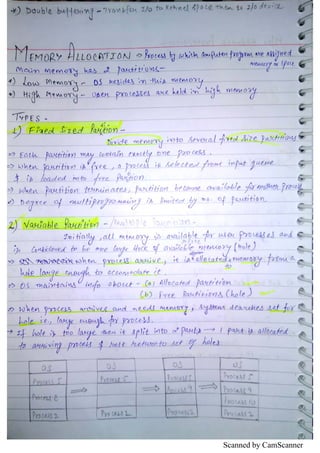 *) Double buffering - Transfer I/o to kernel space then to I/o device
MEMORY ALLOCATION -> Process by which computer programs are assigned
memory or space
Main memory has 2 partitions-
*) Low Memory - OS resides in this memory
*) High Memory - User processes are held in high memory
TYPES -
1) Fixed Sized Partition -
Divide memory into several fixed size partitions
=> Each partition may contain exactly one process.
=> When partition is free, a process is selected from input queue
& is loaded into free partition
=> When partition terminates, partition become available for another process
=> Degree of multiprogramming is limited by no. of partition.
2) Variable Partition -
Initially, all memory is available for user processes and
is considered to be one large block of available memory (hole)
=> When process arrive, is allocated memory from a
hole large enough to accomodate it.
=> OS maintains info about - (a) Allocated partition
(b) Free Partitions (hole)
=> When process arrives and needs memory, system searches set for
hole i.e., large enough for process.
* If hole is too large then it split into 2 parts -> 1 part is allocated
to arriving process & one return to set of holes
OS OS OS OS
Process 5 Process 5 Process 5 Process 5
Process 9 Process 9
Process 8 Process 10
Process 2 Process 2 Process 2 Process 2
Scanned by CamScanner